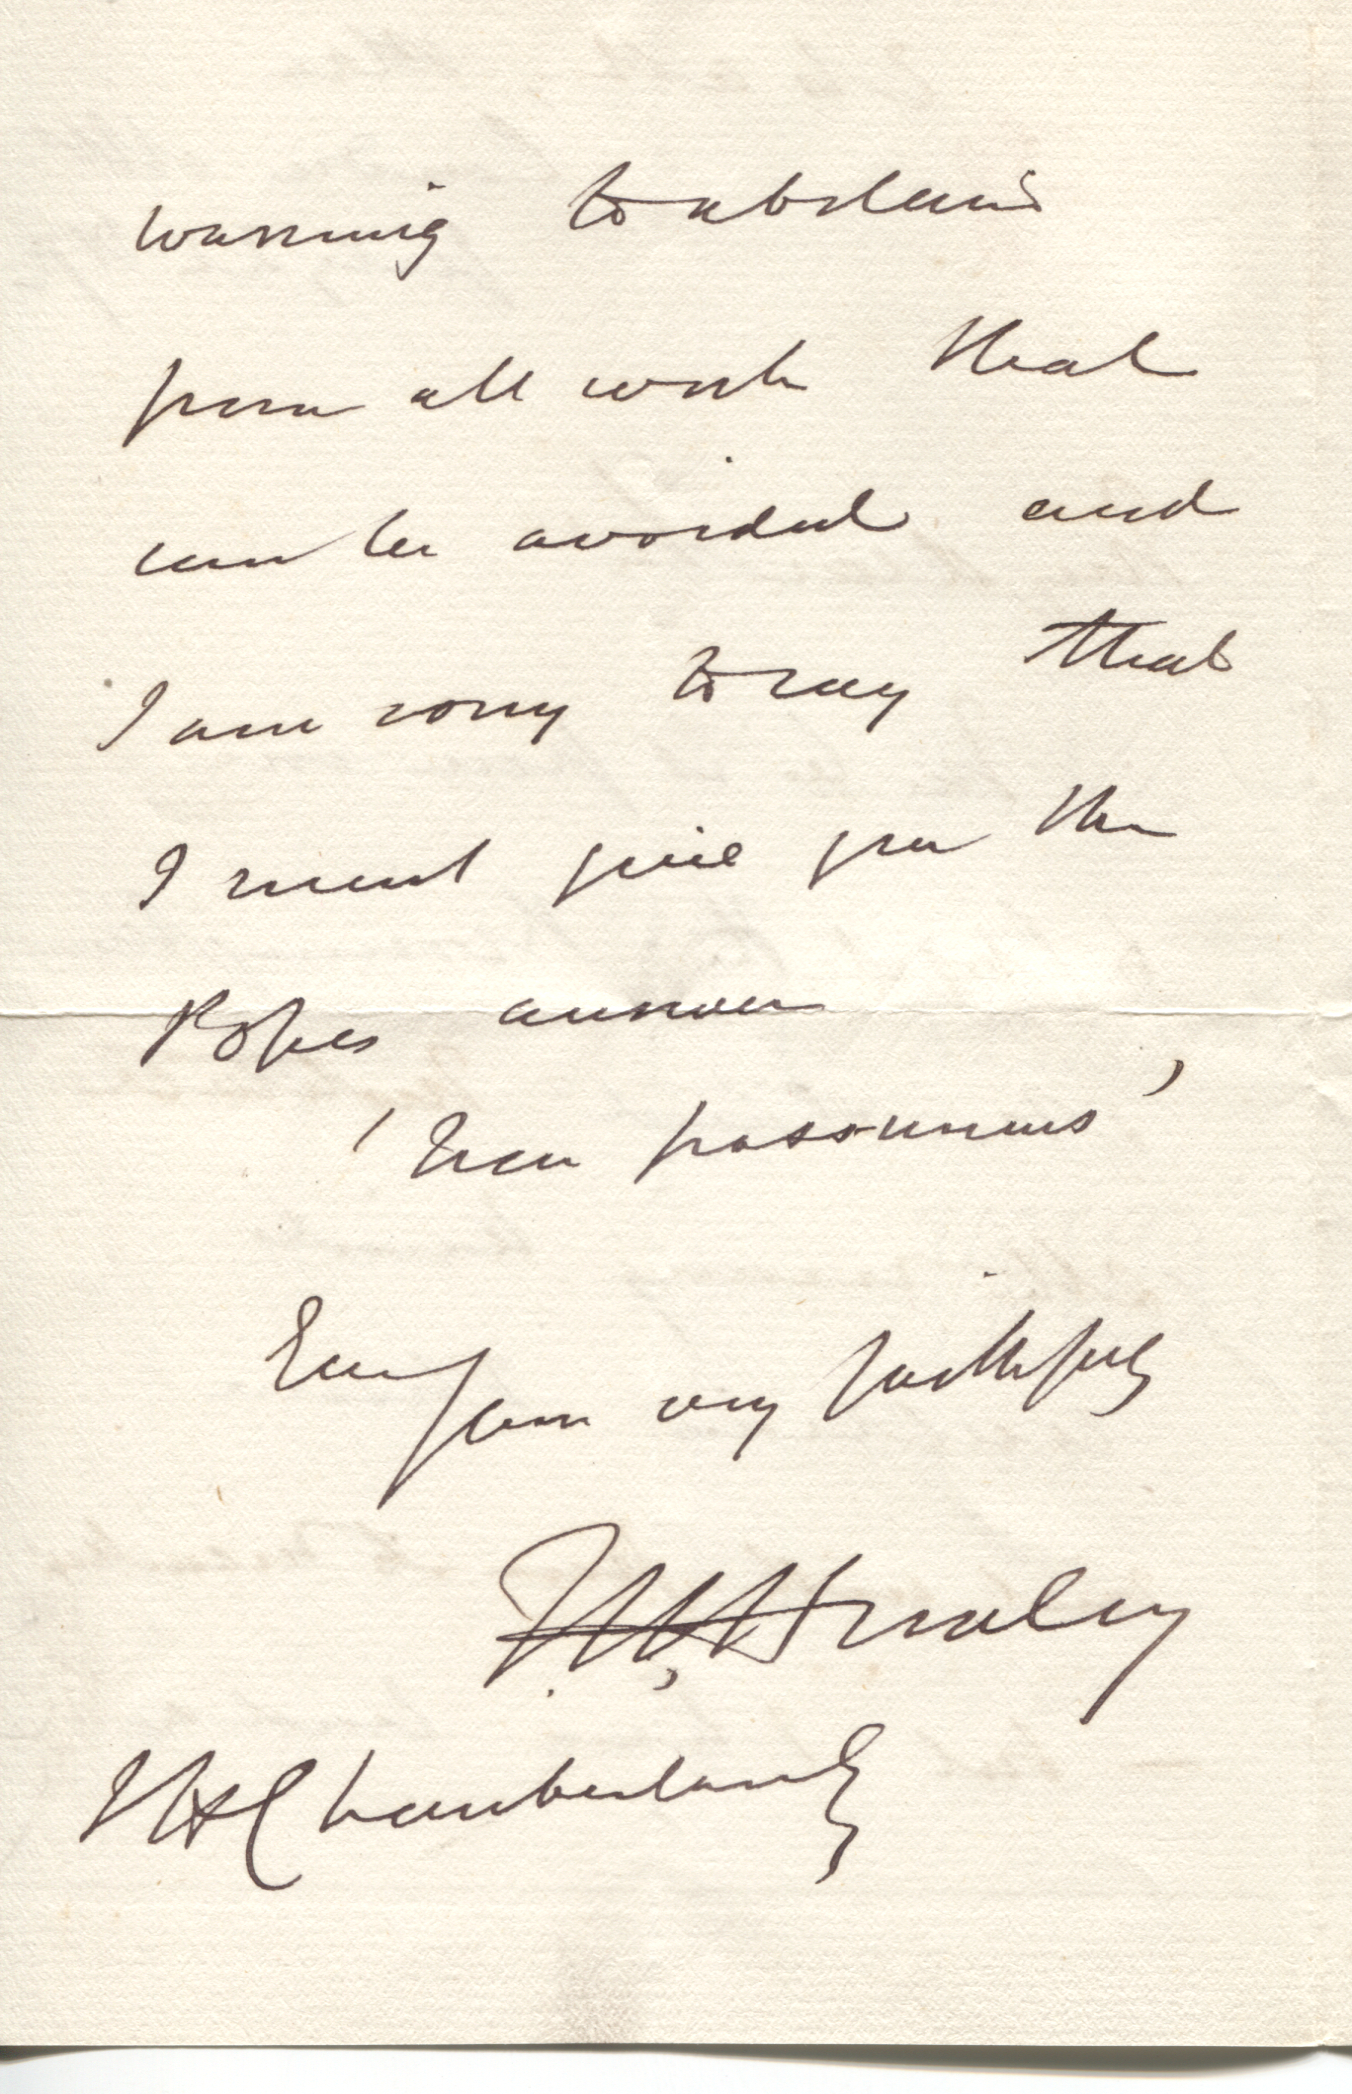 warning to abstain
from all work that
can be avoided and
I am sorry to say that
I must give you the
Popes answer
'Non possumus'
Ever
yours very faithfully
T. H. Huxley
H Chamberlain